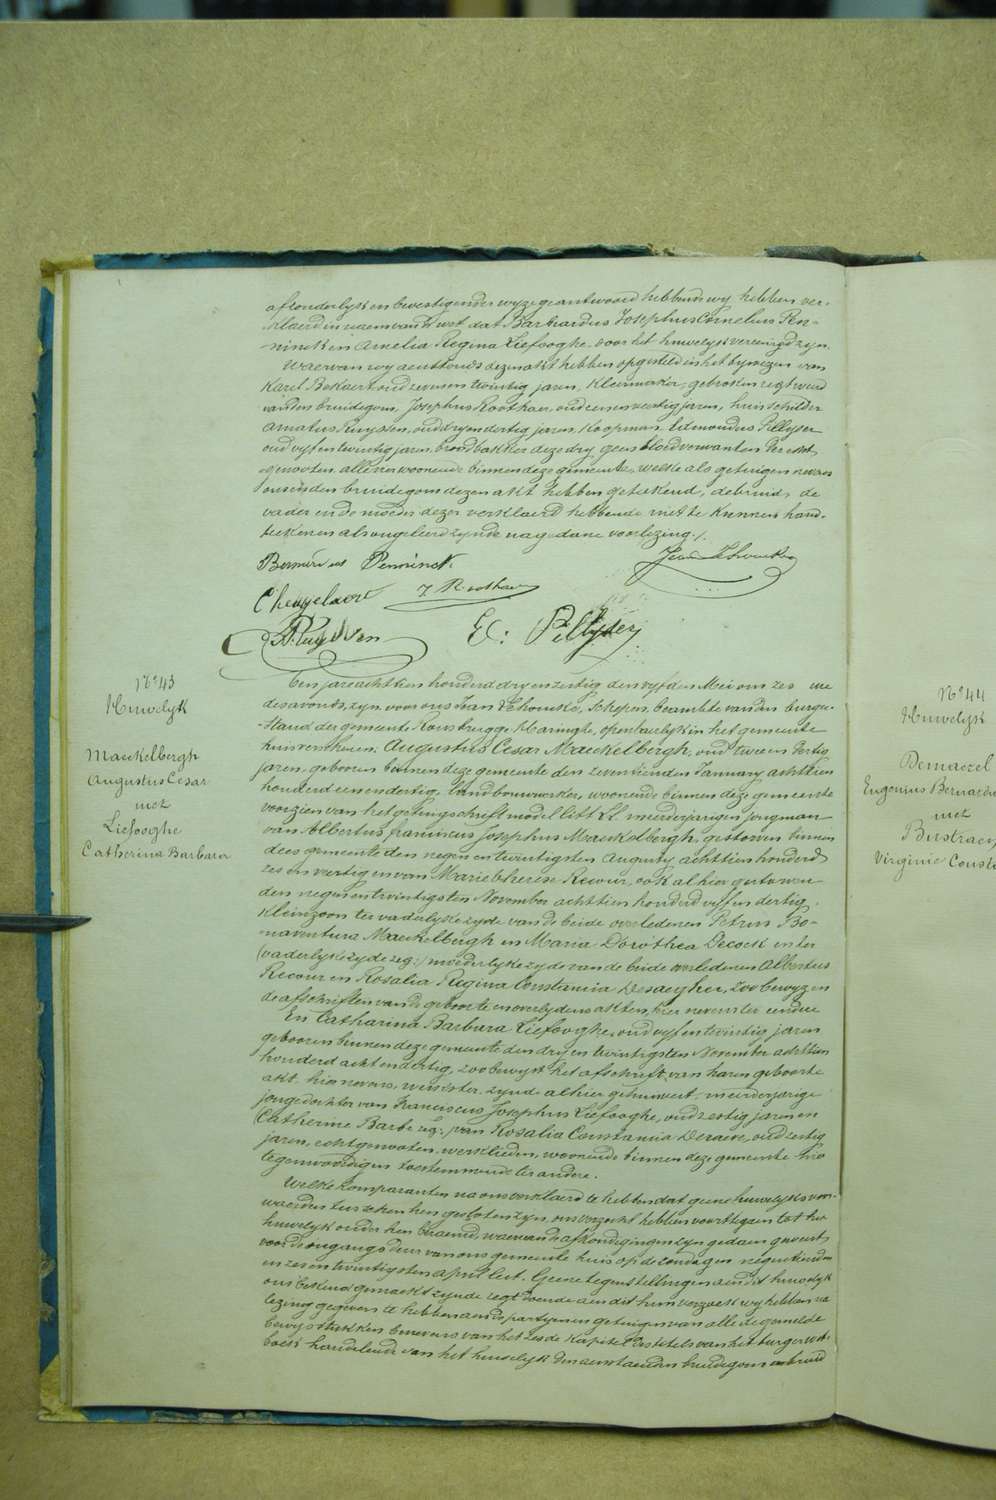 afzonderlyk en bevestigender wyze geantwoord hebbende wy hebben ver-
klaerd in naem van de wet dat Bernardus Josephus Cornelius Pen-
ninck en Amelia Regina Liefooghe door het huwelyk vereenigd zyn.
Waervan wy aenstonds dezen akt hebben opgesteld in het bywezen van
Karel Bekaert oud zevenen twintig jaren, kleermaker, gebroken regtweerd
van den bruidegom, Josephus Roothaer, oud eenenveertig jaren, huisschilder
Amatus Ruyssen, oud dryendertig jaren, koopman, Edmondus Pillyser
oud vyfentwintig jaren, broodbakker deze dry geen bloedverwanten der echt-
genooten, alle vier woonende binnen deze gemeente, welke als getuigen nevens
ons en den bruidegom dezen akt hebben geteekend, de bruid, de
vader en de moeder dezer verklaerd hebbende niet te kunnen hand-
teekenen als ongeleerd zynde na gedane voorlezing./.
Bernardus Penninck
J Roothaer
Ed: Pillyser
N° 43
Huwelyk
Maeckelbergh
Augustus Cesar
met
Liefooghe
Catherina Barbara
Ten jare achttien honderd dryenzestig den vyfden Mei om zes ure
des avonds, zyn voor ons Jean Schoucke, Schepen, beambte van den burger-
stand der gemeente Rousbrugge Haringhe, openbaerlyk in het gemeente
huis verschenen: Augustus Cesar Maeckelbergh, oud tweeendertig
jaren, gebooren binnen deze gemeente den zeventienden January achttien
honderd eenendertig, landbouwwerker, woonende binnen deze gemeente
voorzien van het getuigschrift model litt. Lt. meerderjarigen jongman
van Albertus franciscus Josephus Maeckelbergh, gestorven binnen
dees gemeente den negenentwintigsten Augusty achttien honderd
zesenveertig en van Marie therese Recour, ook alhier gestorven
den negenentwintigsten November achttien honderd vyfendertig,
kleinzoon ter vaderlyke zyde van de beide overledenen Petrus Bo-
naventura Maeckelbergh en Maria Dorothea Decock en ter
(vaderlyke zyde zeg:) moederlyke zyde van de beide overledenen Albertus
Recour en Rosalia Regina Constancia Desaegher, zoo bewyzen
de afschriften van de geboorte en overlydens akten, hier nevens ter eendere
En Catharina Barbara Liefooghe, oud vyfentwintig jaren
gebooren binnen deze gemeente den dryentwintigsten November achttien
honderd achtendertig, zoo bewyst het afschrift van haren geboorte
akt hier nevens, werkster, zynde alhier gehuisvest, meerderjarige
jongedochter van Franciscus Josephus Liefooghe, oud zestig jaren en
(Catherine Barbe zeg:) van Rosalia Constancia Deraeve, oud zestig
jaren, echtgenooten, werklieden, woonende binnen deze gemeente hie
tegenwoordig en toestemmende ter andere.
Welke komparanten na ons verklaerd te hebben dat geene huwelyks voor-
waerden tusschen hen gesloten zyn, ons verzocht hebben voortegaen tot het
huwelyk onder hen beraemd, waervan de afkondigingen zyn gedaen geweest
voor de ingangsdeur van ons gemeente huis op de zondagen negentienden
en zesentwintigsten april lest. Geene tegenstellingen aen dit huwelyk
ons bekend gemaekt zynde regt doende aen dit hun verzoek wy hebben na
lezing gegeven te hebben aen de partyen en getuigen van alle de gemelde
bewysstukken benevens van het zesde kapittel des titels van het burger wet-
boek handelende van het huwelyk den aenstaenden bruidegom en bruid
N° 44
Huwelyk
Demaezel
Eugenius Bernardu
met
Bustraen
Virginie Const